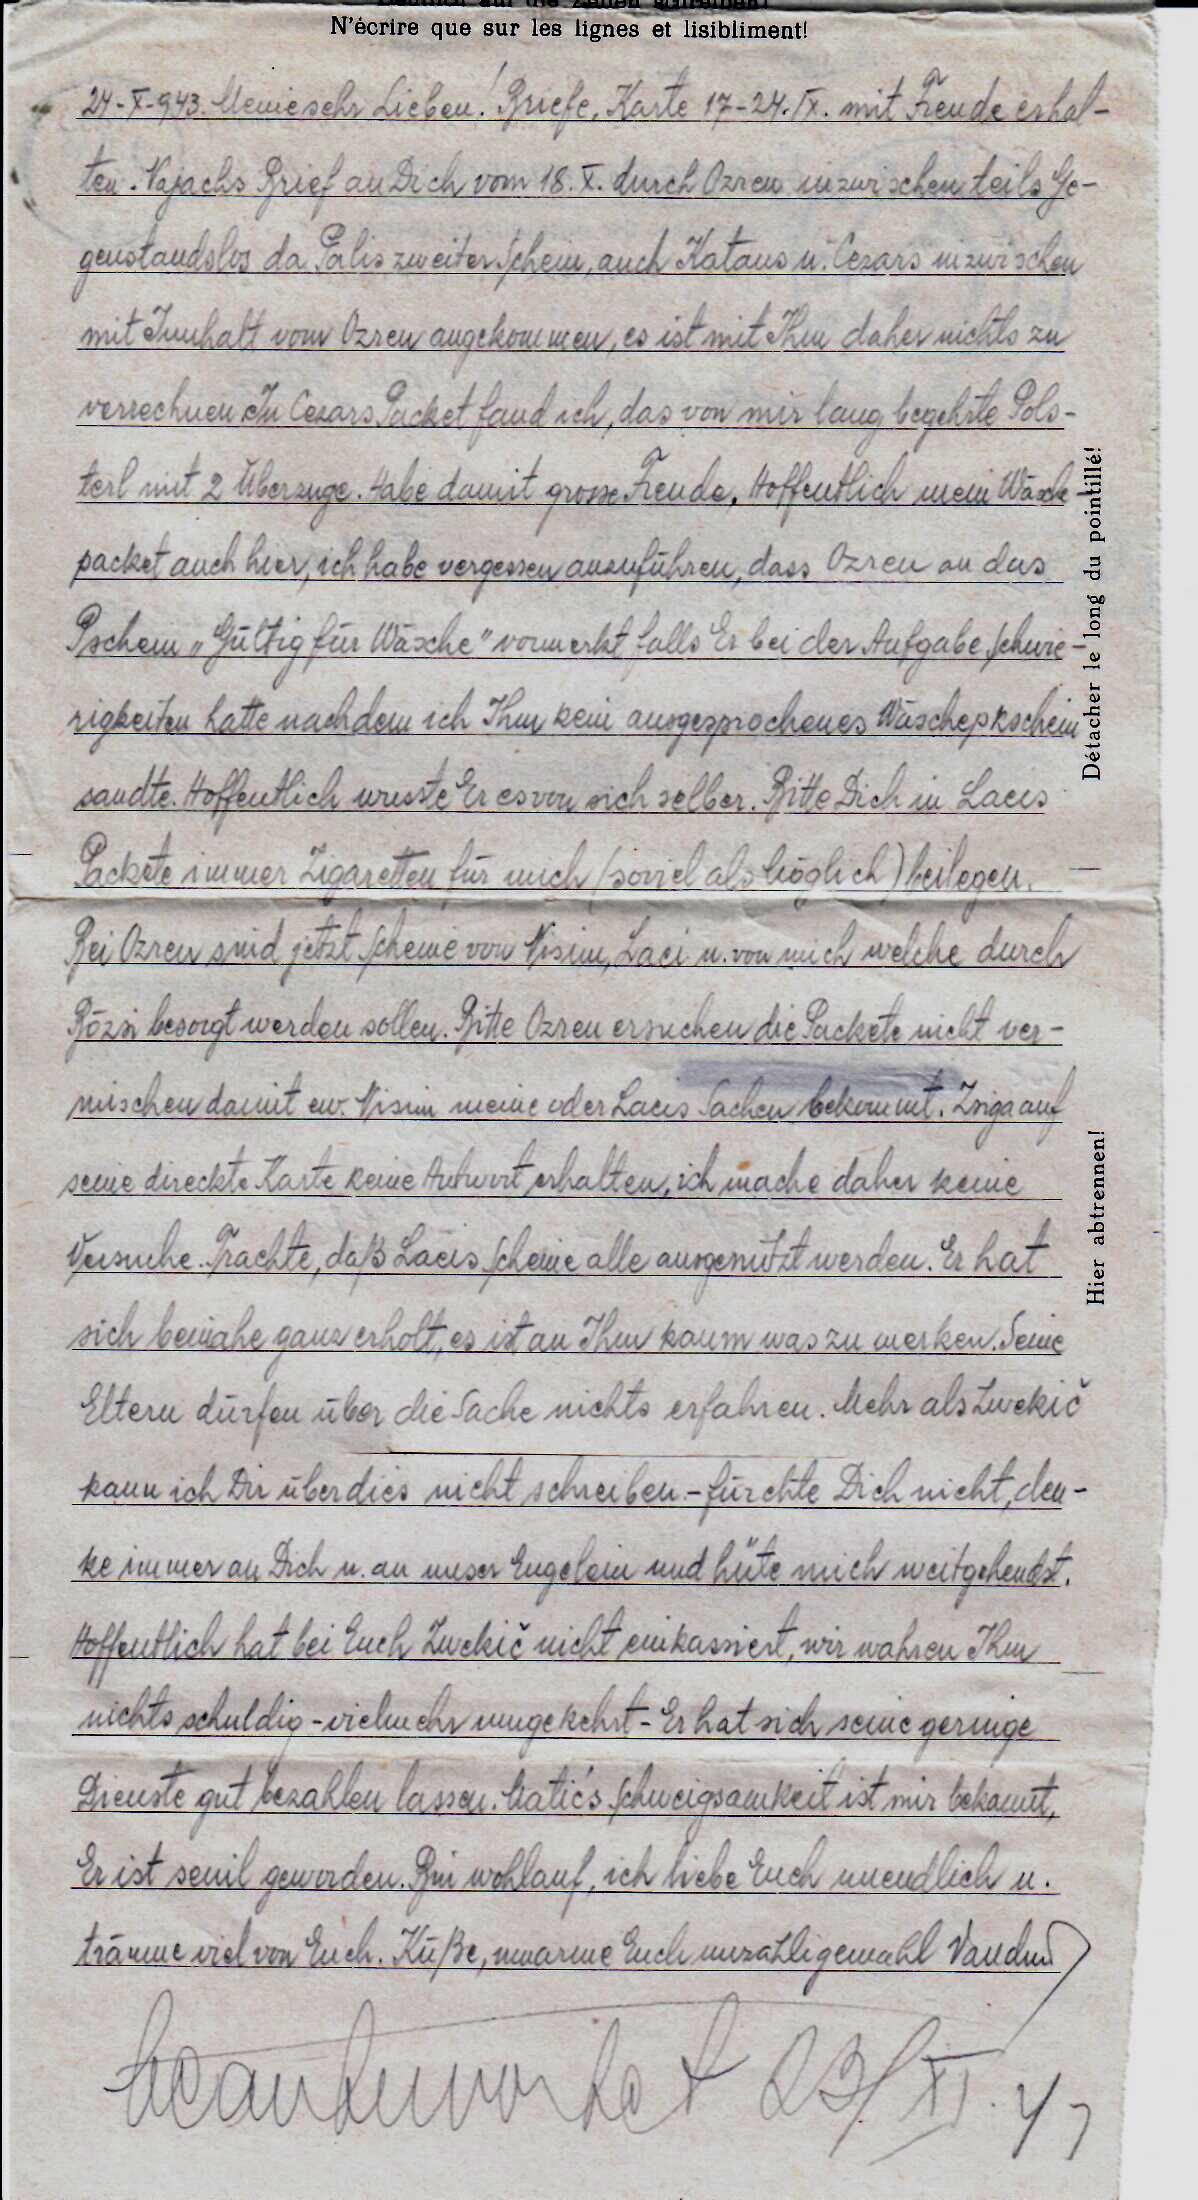 Deutlich auf die Zeilen schreiben!
N'écrire que sur les lignes et lisibliment!
24-X-943. Meine sehr Lieben! Briefe, Karte 17-24.IX. mit Freude erhal-
ten. Vajachs Brief an Dich vom 18.X. durch Ozren inzwischen teils Ge-
genstandslos da Palis zweiter Schein, auch Katans u. Cezars inzwischen
mit Innhalt vom Ozren angekommen, es ist mit Ihm daher nichts zu
verrechnen. In Cezars Packet fand ich, das von mir lang begehrte Pols-
terl mit 2 Überzuge. Habe damit grosse Freude. Hoffentlich mein Wäsche-
packet auch hier, ich habe vergessen anzuführen, dass Ozren an das
Pschein „Gültig für Wäsche" vormerkt falls Er bei der Aufgabe Schwie-
rigkeiten hatte nachdem ich Ihm kein ausgesprochenes Wäschepkschein
sandte. Hoffentlich wusste Er es von sich selber. Bitte Dich in Lacis
Packete immer Zigaretten für mich (soviel als möglich) beilegen.
Bei Ozren sind jetzt Scheine von Visim, Laci u. von mich welche durch
Rózsi besorgt werden sollen. Bitte Ozren ersuchen die Packete nicht ver-
mischen damit ev. Visim meine oder Lacis Sachen bekommt. Zsiga auf
seine direckte Karte keine Antwort erhalten, ich mache daher keine
Versuche. Trachte, daß Lacis Scheine alle ausgenützt werden. Er hat
sich beinahe ganz erholt, es ist an Ihm kaum was zu merken. Seine
Eltern dürfen über die Sache nichts erfahren. Mehr als Zwekič
kann ich Dir überdies nicht schreiben - fürchte Dich nicht, den-
ke immer an Dich u. an unser Engelein und hüte mich weitgehendst.
Hoffentlich hat bei Euch Zwekič nicht einkassiert, wir wahren Ihm
nichts schuldig - vielmehr umgekehrt - Er hat sich seine geringe
Dienste gut bezahlen lassen. Matić's Schweigsamkeit ist mir bekannt,
Er ist senil geworden. Bin wohlauf, ich liebe Euch unendlich u.
träume viel von Euch. Küße, umarme Euch unzähligemahl
beantwortet 23/XI. 43
Détacher le long du pointillé!
Hier abtrennen!